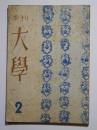 季刊
大學
2